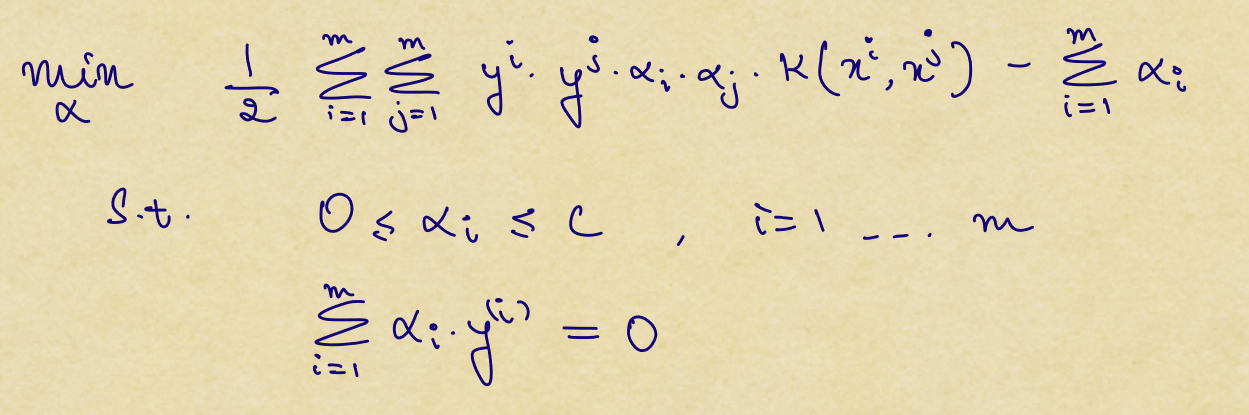 min_α 1/2 Σ_{i=1}^{m} Σ_{j=1}^{m} y^i · y^j · α_i · α_j · K(x^i, x^j) - Σ_{i=1}^{m} α_i
s.t. 0 ≤ α_i ≤ C , i=1 ... m
Σ_{i=1}^{m} α_i · y^{(i)} = 0